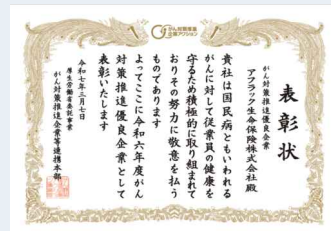 がん対策推進
企業アクション
表彰状
がん対策推進優良企業
アフラック生命保険株式会社殿
貴社は国民病ともいわれる
がんに対して従業員の健康を
守るため積極的に取り組まれて
おりその努力に敬意を払う
ものであります
よってここに令和六年度がん
対策推進優良企業として
表彰いたします
令和七年三月七日
厚生労働省委託事業
がん対策推進企業等連携本部